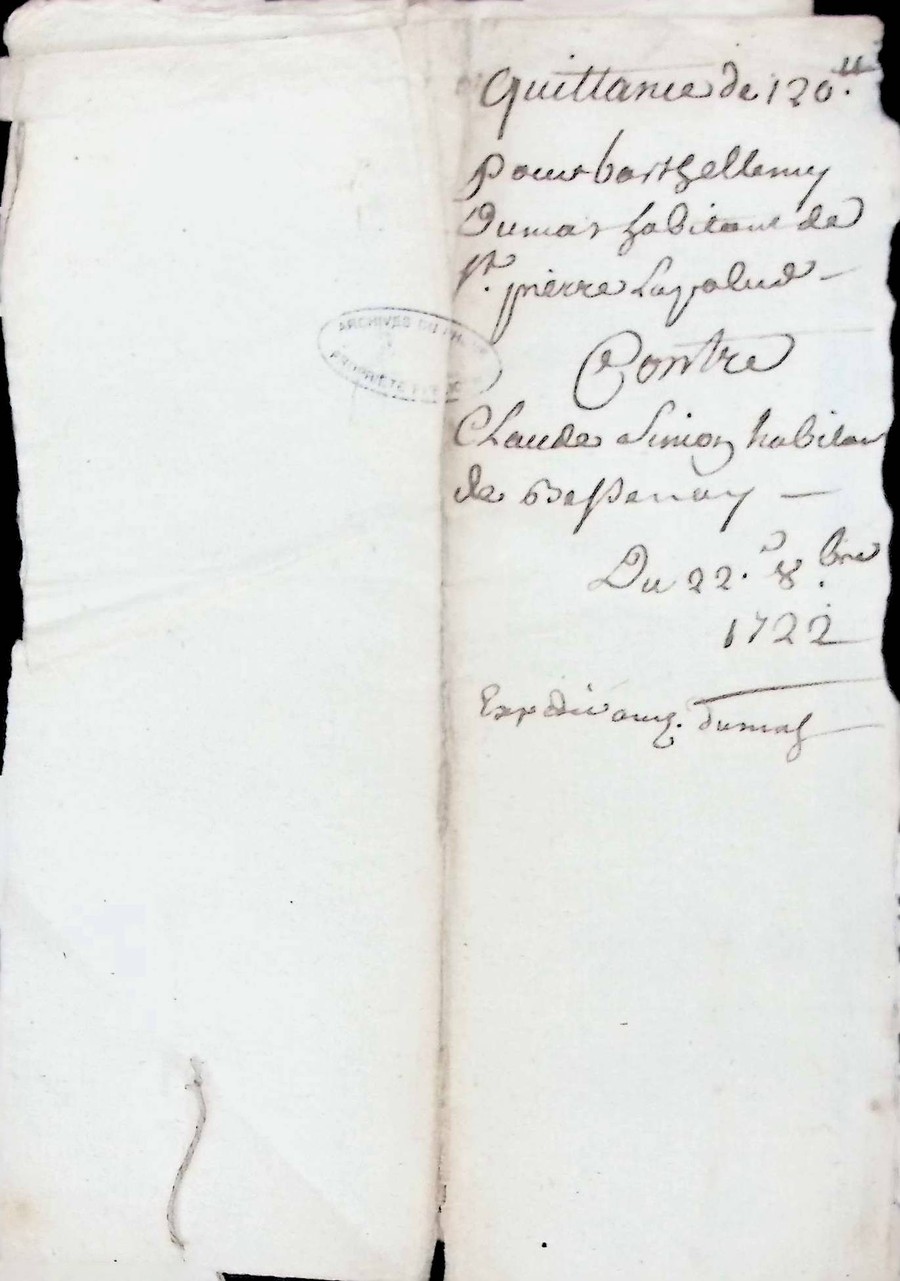 Quittance de 120.ᵗᵗ
Pour barthellemy
Dumas habitant de
St. pierre Lapalud –
Contre
Claude Simon habitan
de Bessenay –
Du 22. 8.bre
1722
Expedié aud. dumas
ARCHIVES DU RHÔNE
PROPRIÉTÉ PUBLIQUE